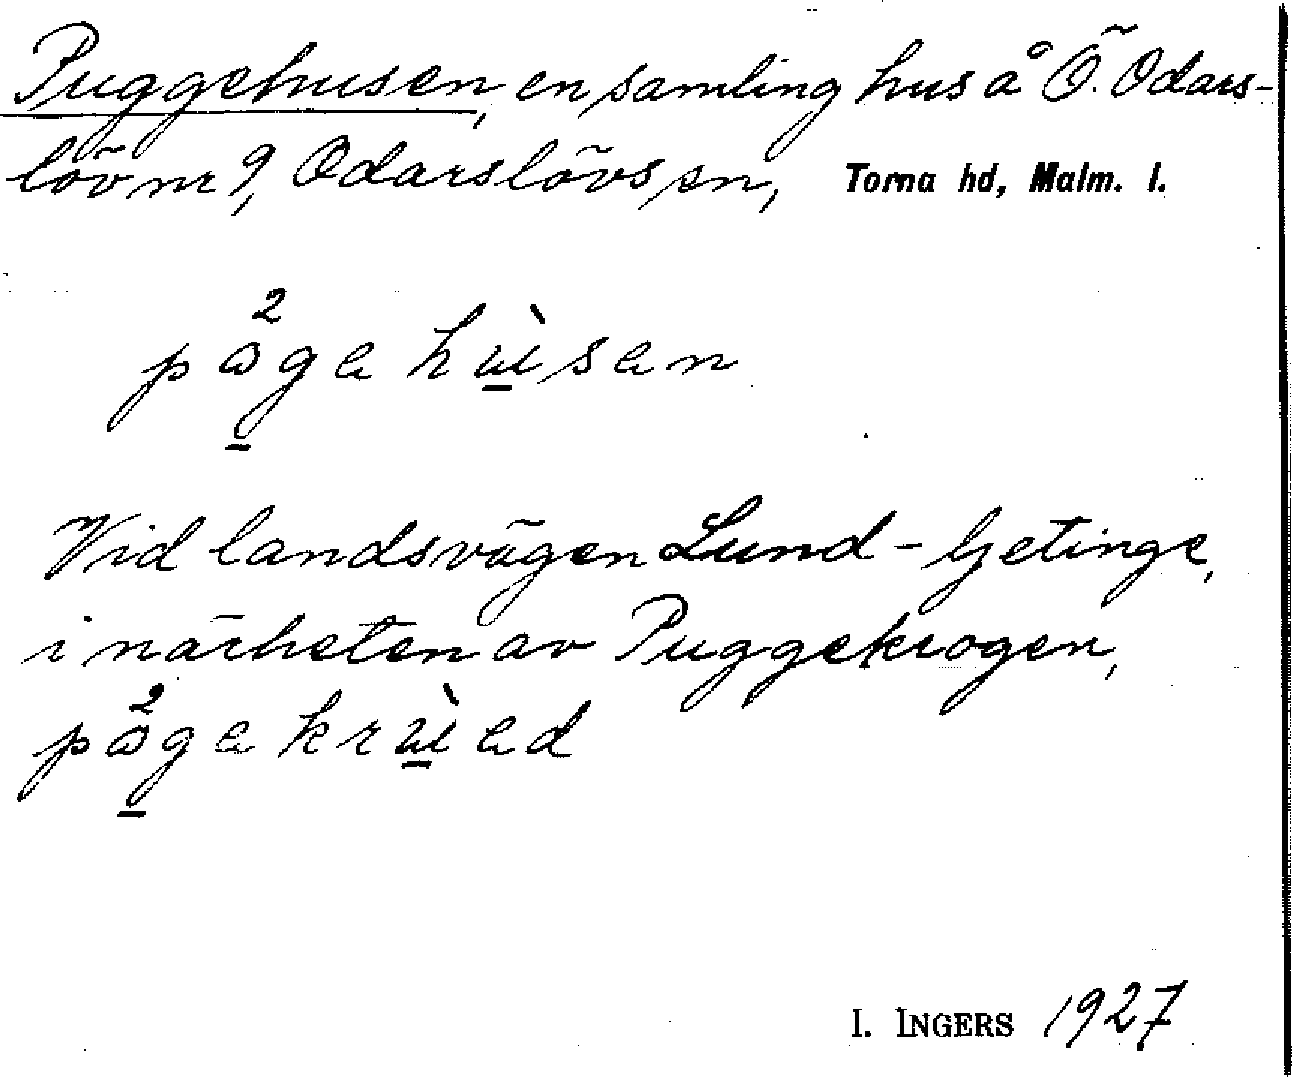 Puggehusen, en samling hus å Ö. Odars-
löv nr 9, Odarslövs sn, Torna hd, Malm. l.
på̲²ge hù̲sen
Vid landsvägen Lund - Getinge,
i närheten av Puggekrogen,
på̲²ge krù̲ed
I. INGERS 1927